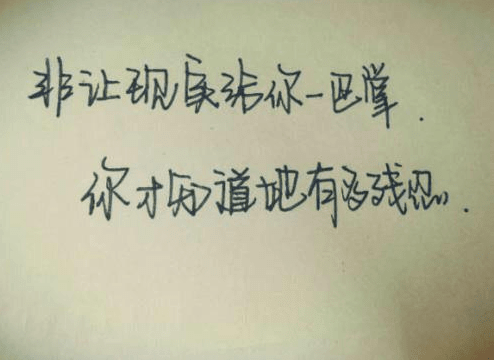 非让现实给你一巴掌.
你才知道她有多残忍.